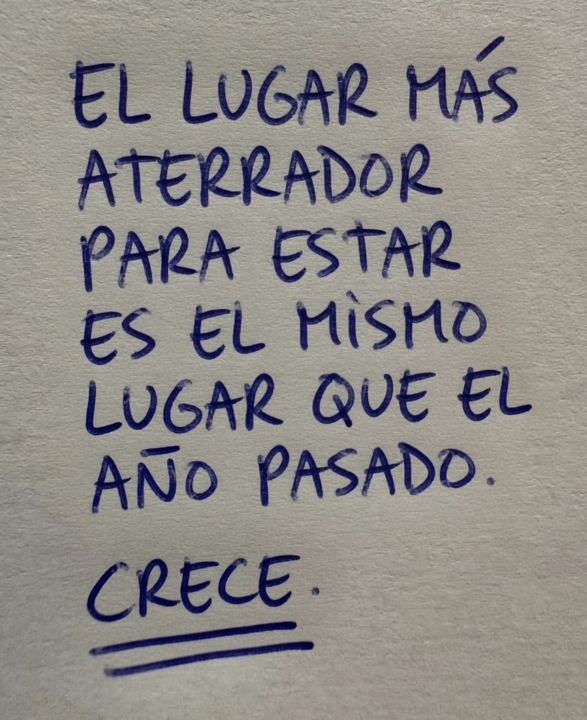 EL LUGAR MÁS
ATERRADOR
PARA ESTAR
ES EL MISMO
LUGAR QUE EL
AÑO PASADO.
CRECE.